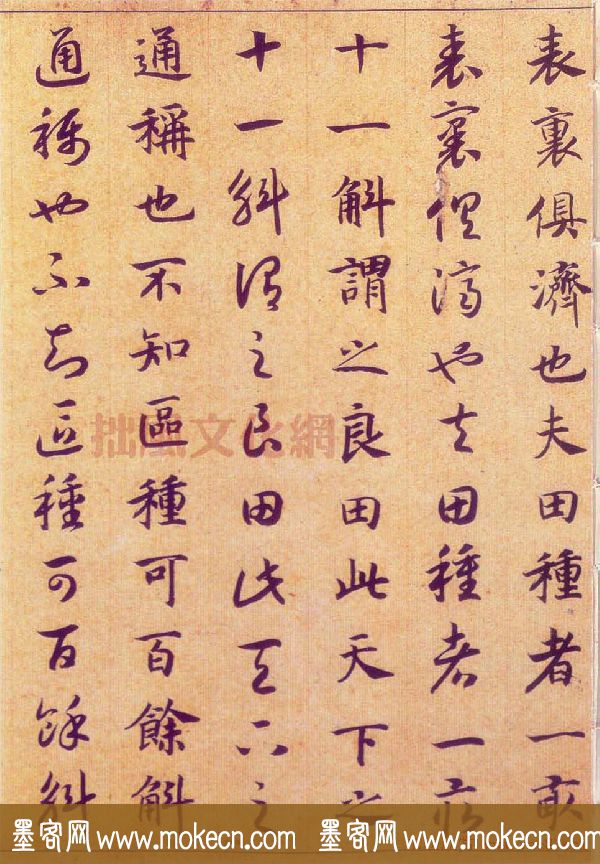 表裏俱濟也夫田種者一畝
表裏俱濟也夫田種者一畝
十一斛謂之良田此天下之
十一斛謂之良田此天下之
通稱也不知區種可百餘斛
通稱也不知區種可百餘斛
拙風文化網
墨客网 www.mokecn.com 墨客网 www.mokecn.com